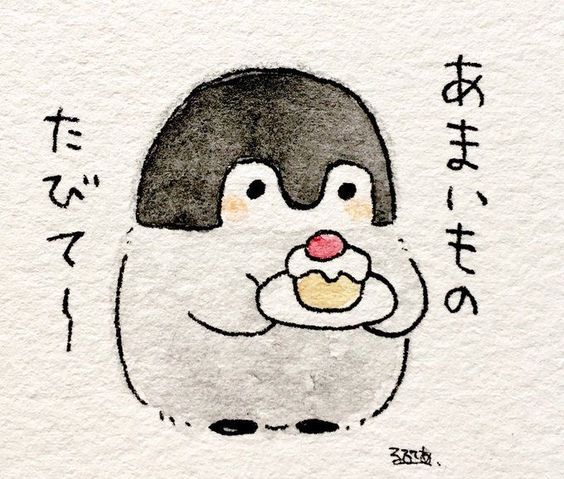 あまいもの
たびて〜
るるてあ.